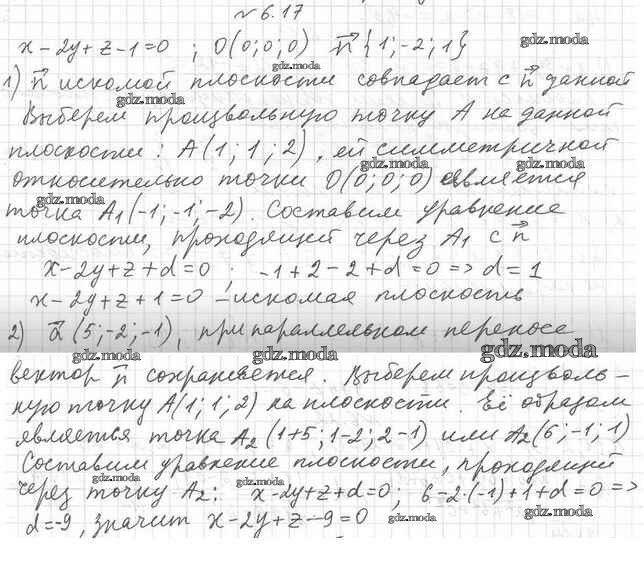 № 6.17
x - 2y + z - 1 = 0 ; O(0; 0; 0) n⃗ {1; -2; 1}
gdz.moda
gdz.moda
1) n⃗ искомой плоскости совпадает с n⃗ данной
gdz.moda
Выберем произвольную точку A на данной
плоскости: A(1; 1; 2), ей симметричной
gdz.moda gdz.moda
относительно точки O(0; 0; 0) является
gdz.moda
точка A₁(-1; -1; -2). Составим уравнение
плоскости, проходящей через A₁ с n⃗
x - 2y + z + d = 0 ; -1 + 2 - 2 + d = 0 => d = 1
x - 2y + z + 1 = 0 - искомая плоскость
2) a⃗ (5; -2; -1), при параллельном переносе
gdz.moda gdz.moda gdz.moda
вектор n⃗ сохраняется. Выберем произволь-
ную точку A(1; 1; 2) на плоскости. Её образом
является точка A₂ (1+5; 1-2; 2-1) или A₂(6; -1; 1)
Составим уравнение плоскости, проходящей
gdz.moda gdz.moda
через точку A₂: x - 2y + z + d = 0; 6 - 2·(-1) + 1 + d = 0 =>
d = -9, значит x - 2y + z - 9 = 0
gdz.moda gdz.moda